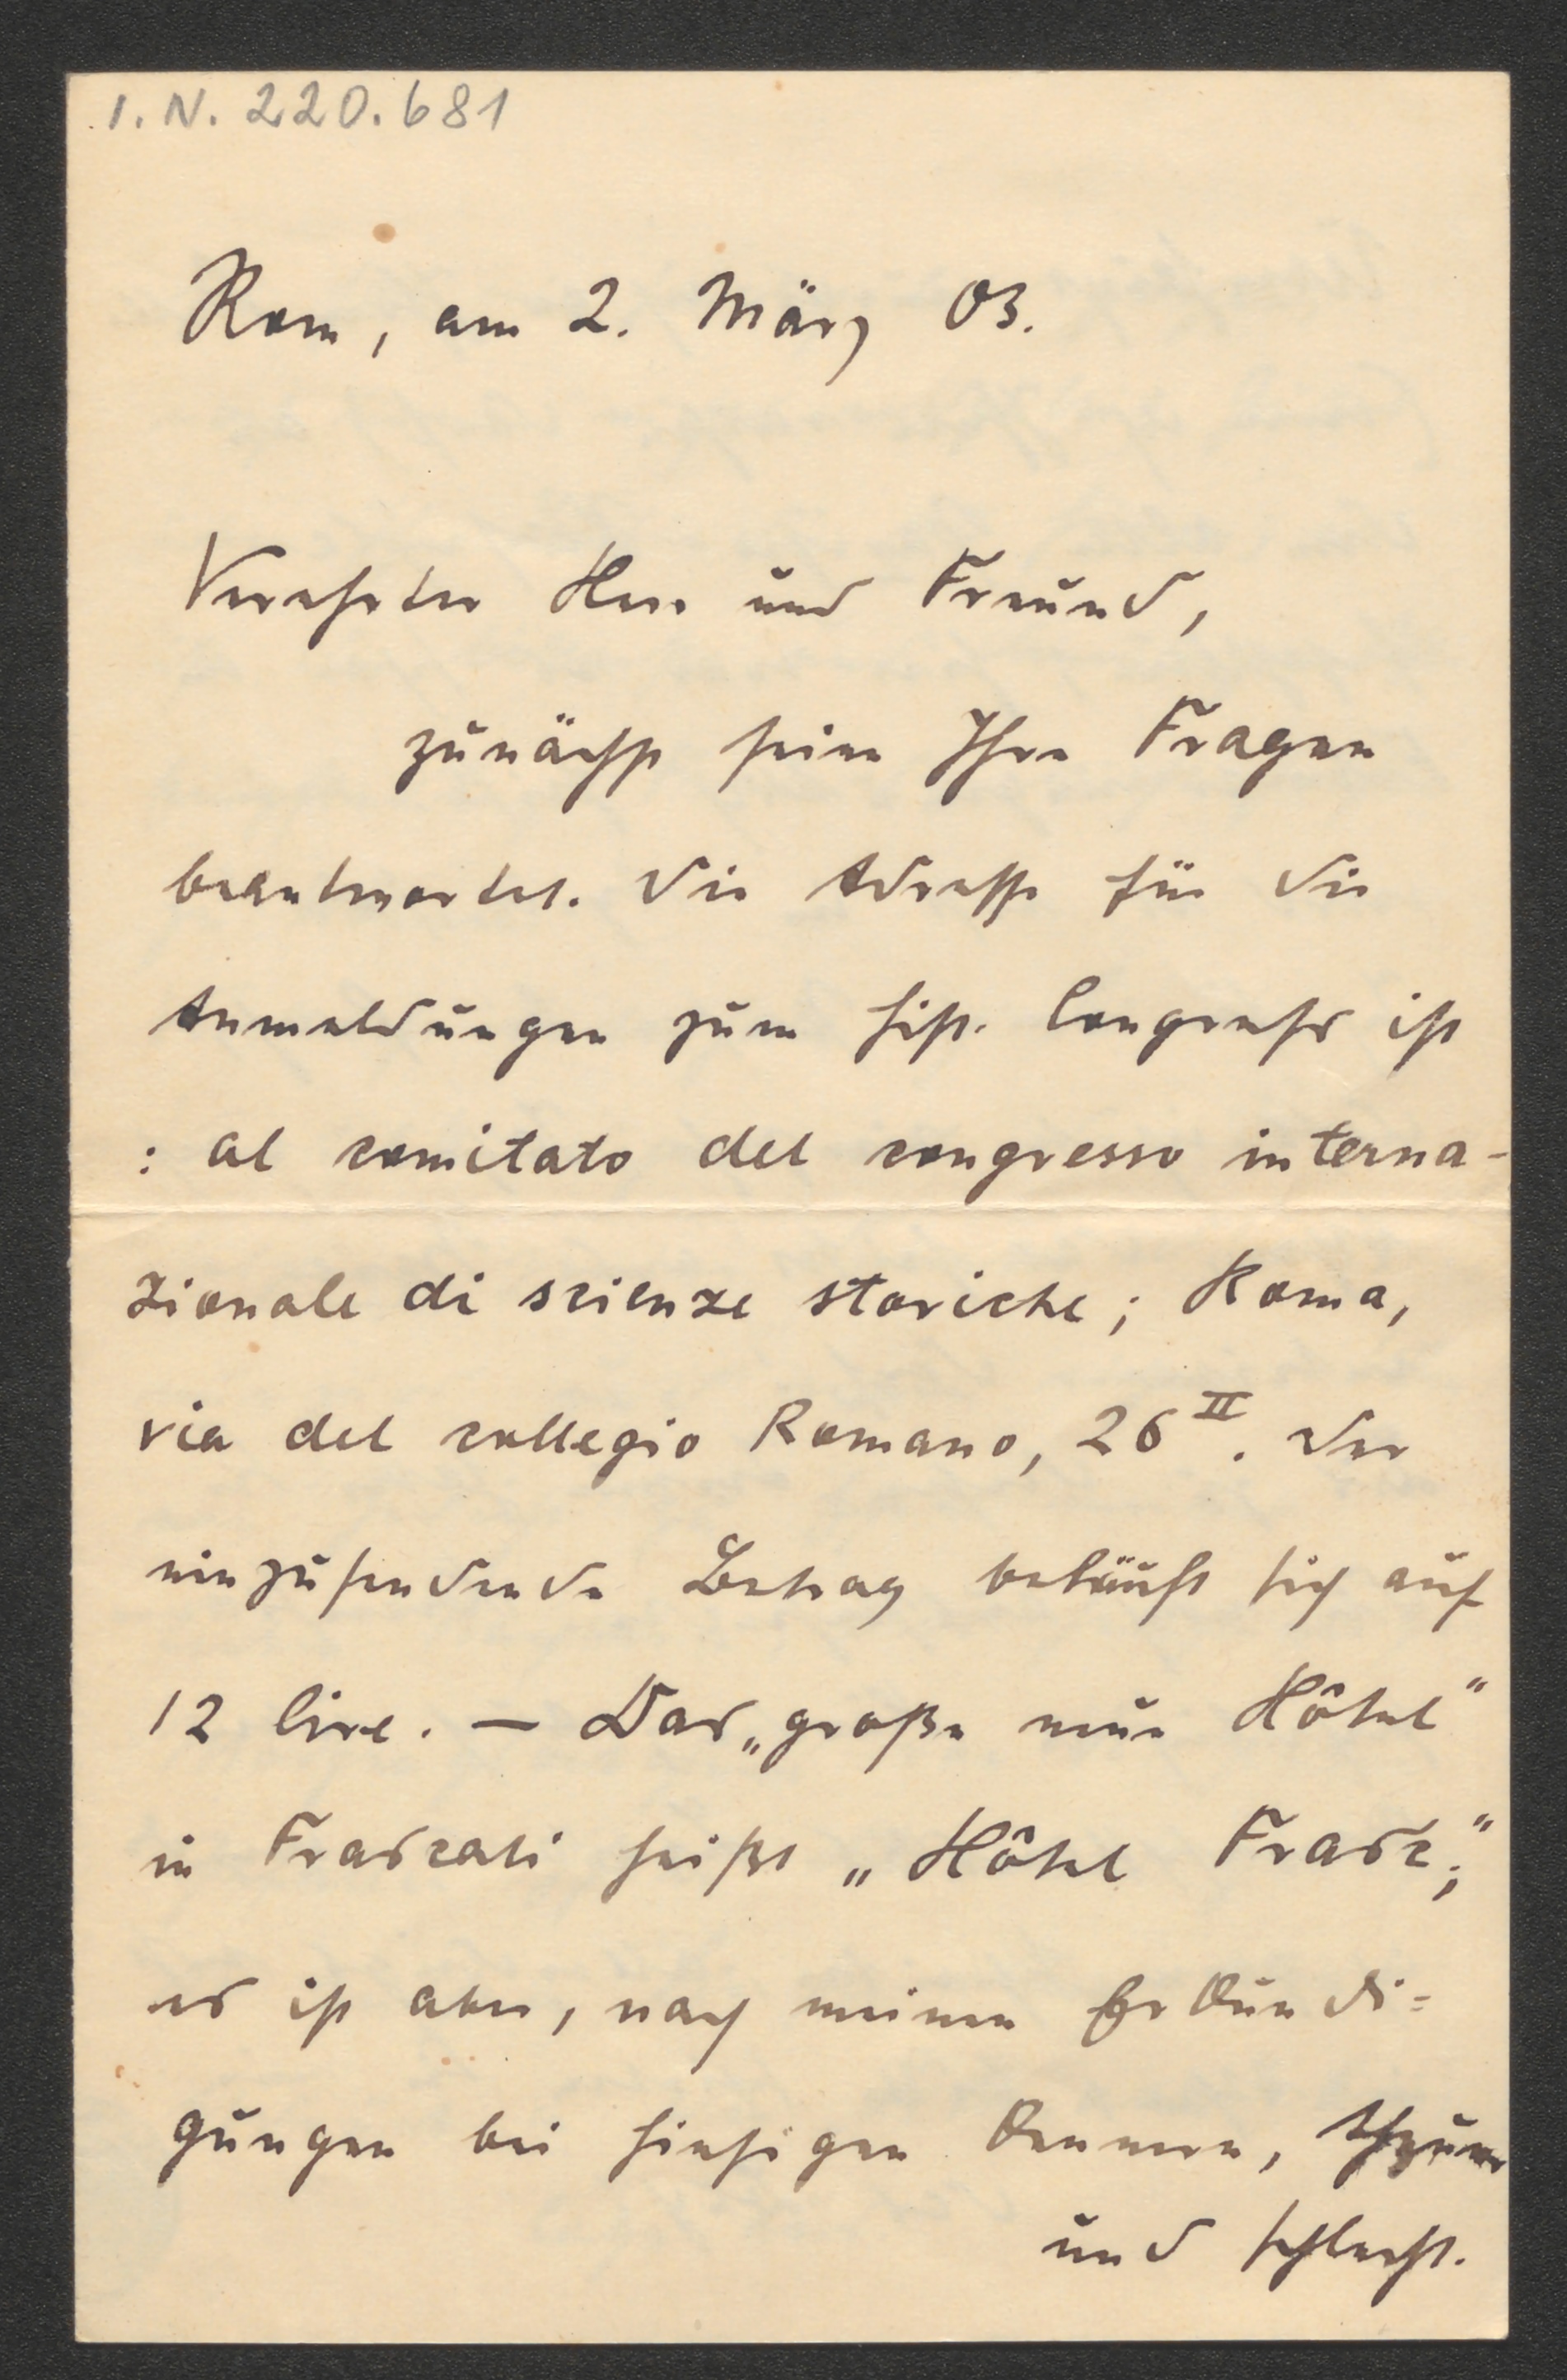 I.N. 220.681
Rom, am 2. März 03.
Verehrter Herr und Freund,
zunächst seien Ihre Fragen
beantwortet. Die Adresse für die
Anmeldungen zum hist. Congress ist
: al comitato del congresso interna-
zionale di scienze storiche; Roma,
via del collegio Romano, 26 II. Der
einzusendende Betrag beläuft sich auf
12 lire. — Das „große neue Hôtel"
in Frascati heißt „Hôtel Frasc.";
es ist aber, nach meinen Erkundi=
gungen bei hiesigen Kennern, theuer
und schlecht.